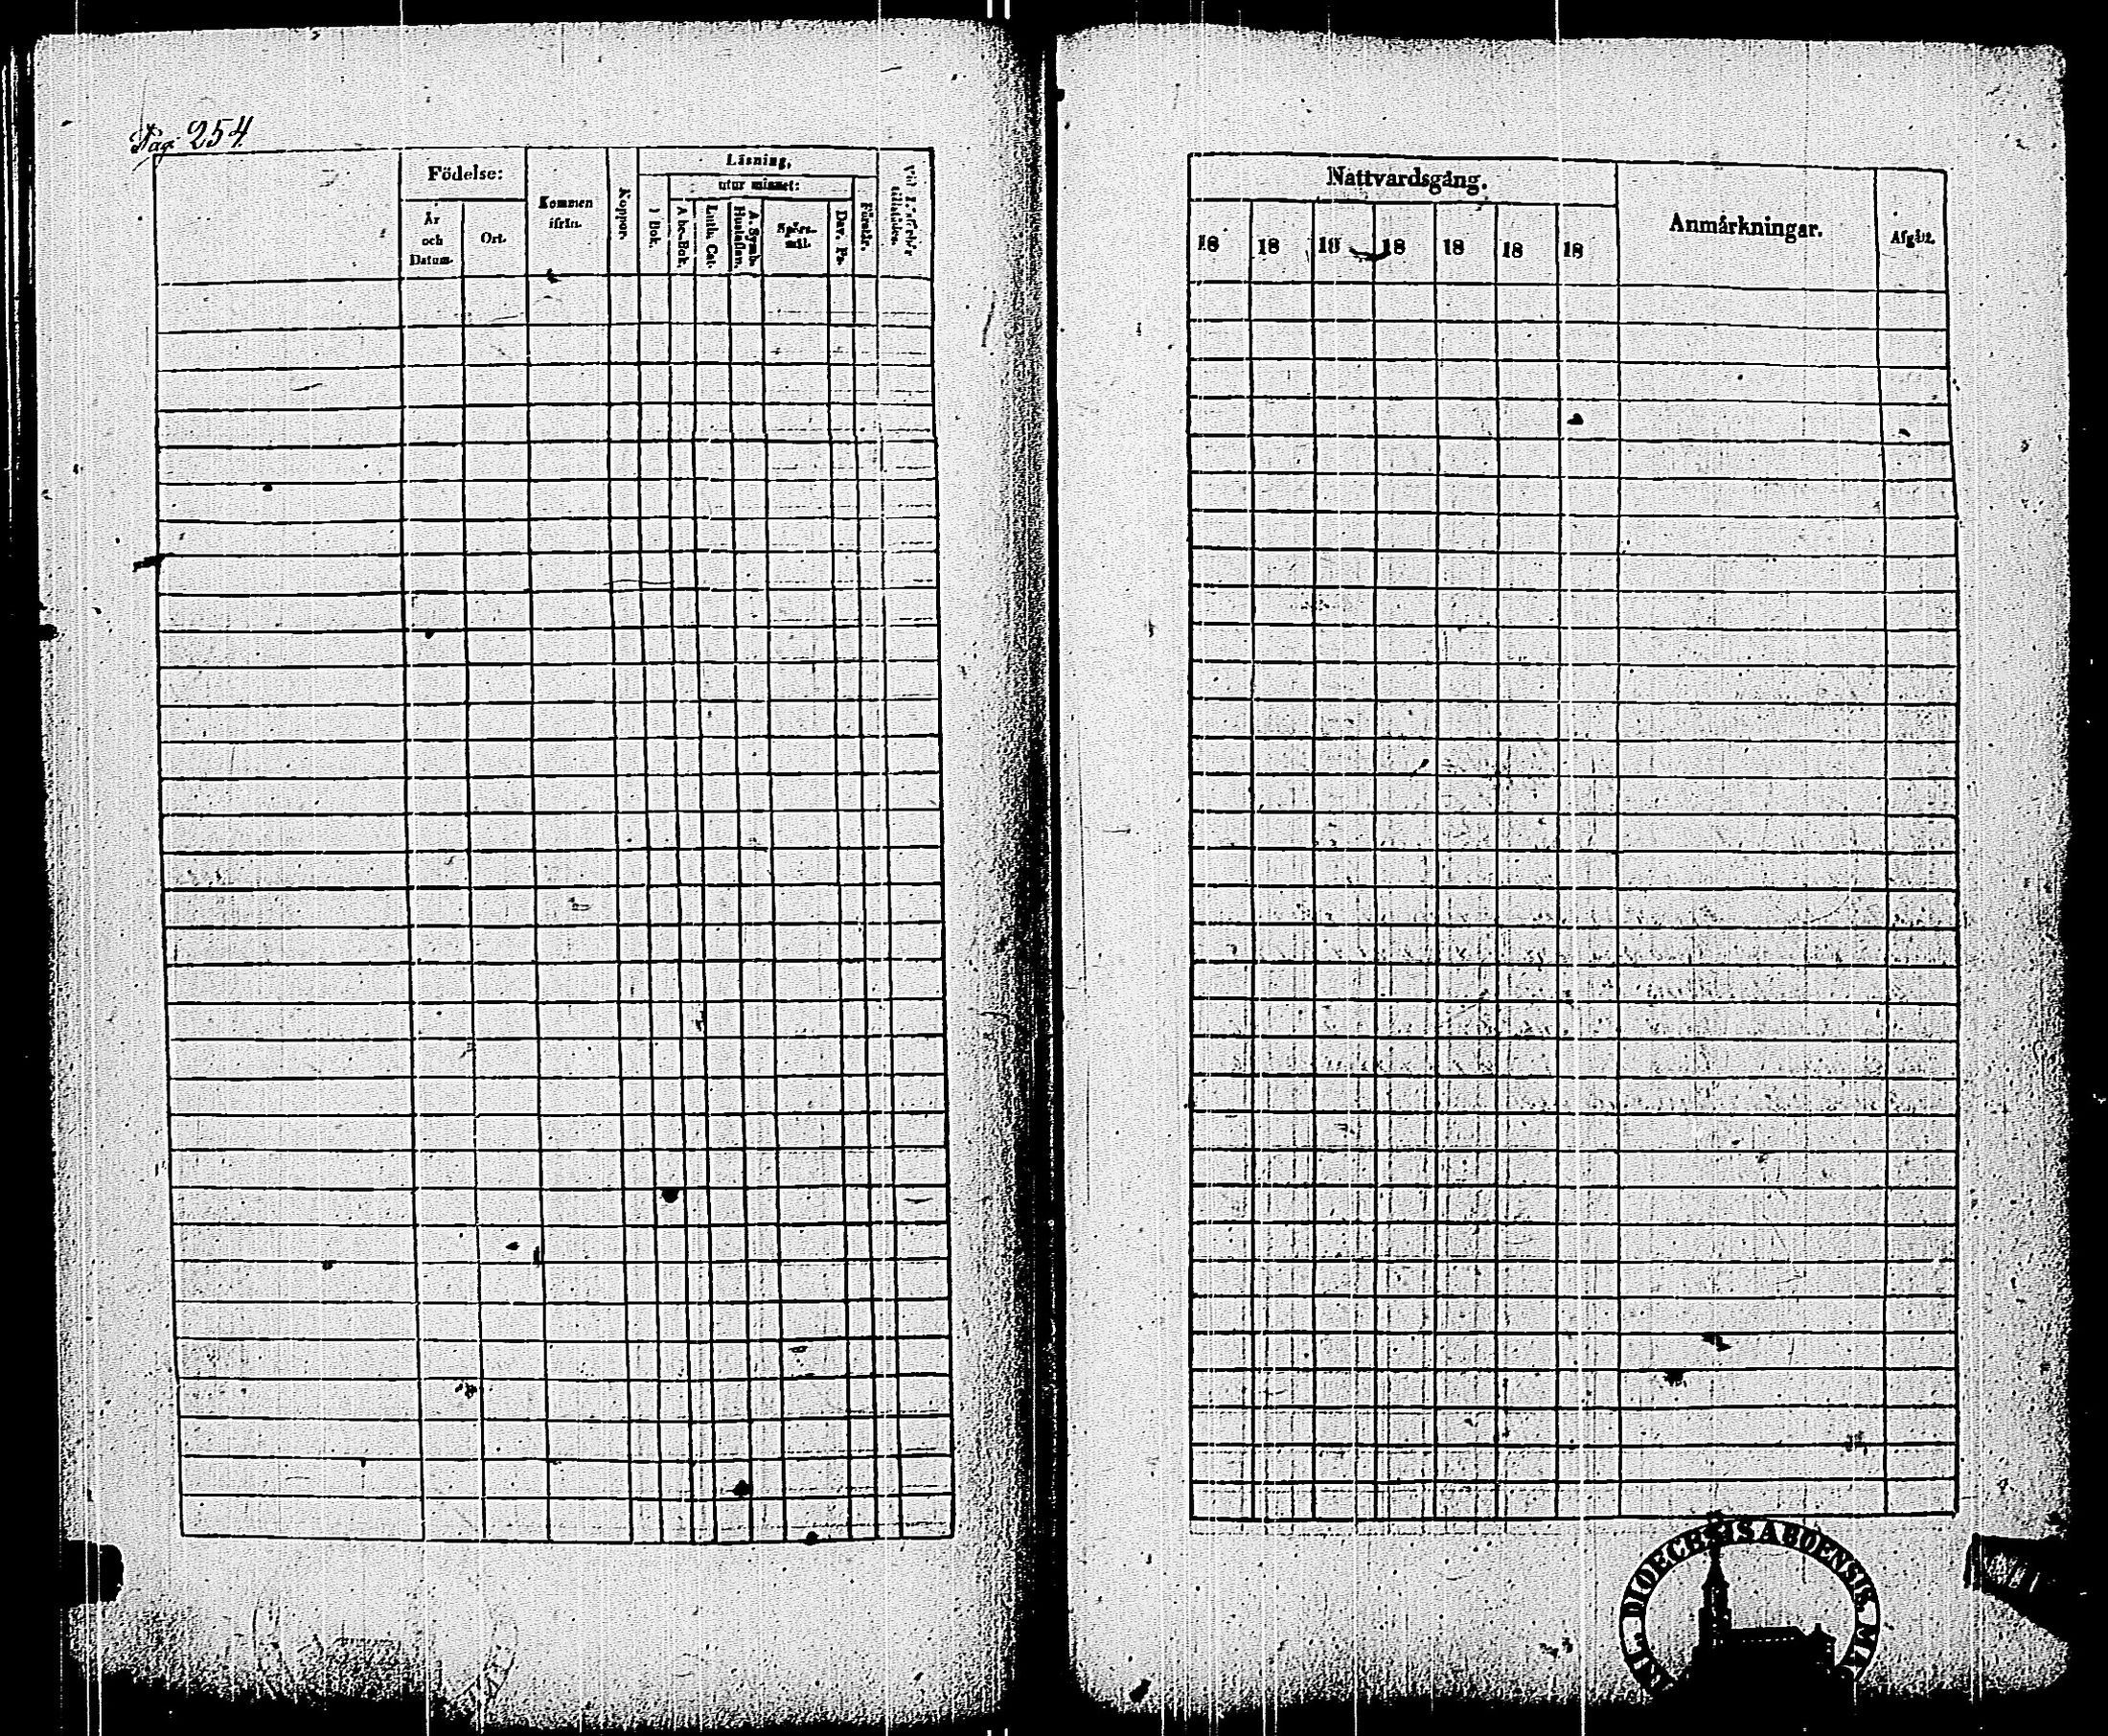 Pag. 254.
Födelse:
År
och
Datum.
Ort.
Kommen
ifrån.
Koppor.
Läsning,
utur minnet:
I Bok.
Abc-Bok.
Luth. Cat.
A. Symb.
Hustaflan.
Spörs-
mål.
Dav. Ps.
Förstår.
Nattvardsgång.
18 18 18 18 18 18 18
Anmärkningar.
Afgått.
DIOECESIS ABOENSIS. MA